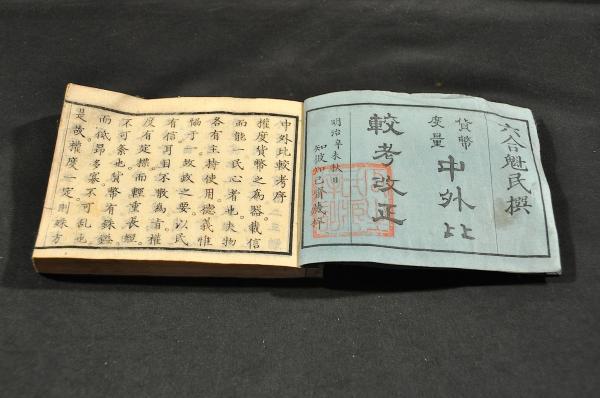 六合魁民撰
貨幣
度量
中外比
較考改正
明治辛未秋日
知彼知己齋蔵梓
中外比較考序
權度貨幣之為器載信
而能一民心者也夫物
各有主持使用德義惟
幅于一故政之要以民
有信耳目不散為首權
度有定準而輕重長短
不可紊也貨幣有銖鎰
而低昂考察不可乱也
是故權度一定則殊方